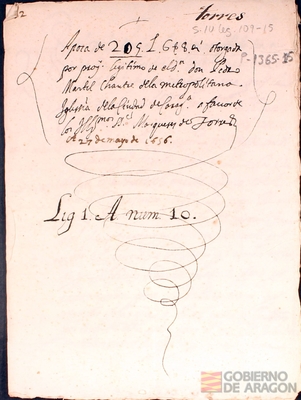 32
Torres
S. IV Leg. 109-15
P-1365-15
Apoca de 205 L. 6 s 8. otorgada
por procu. legitimo de el Dr. don Pedro
Martel Chantre de la metropolitana
Iglesia de la Ciudad de Carag. a favor de
los Marqueses de Torres
A 27 de mayo de 1656.
Lig 1. A num 10.
GOBIERNO
DE ARAGON